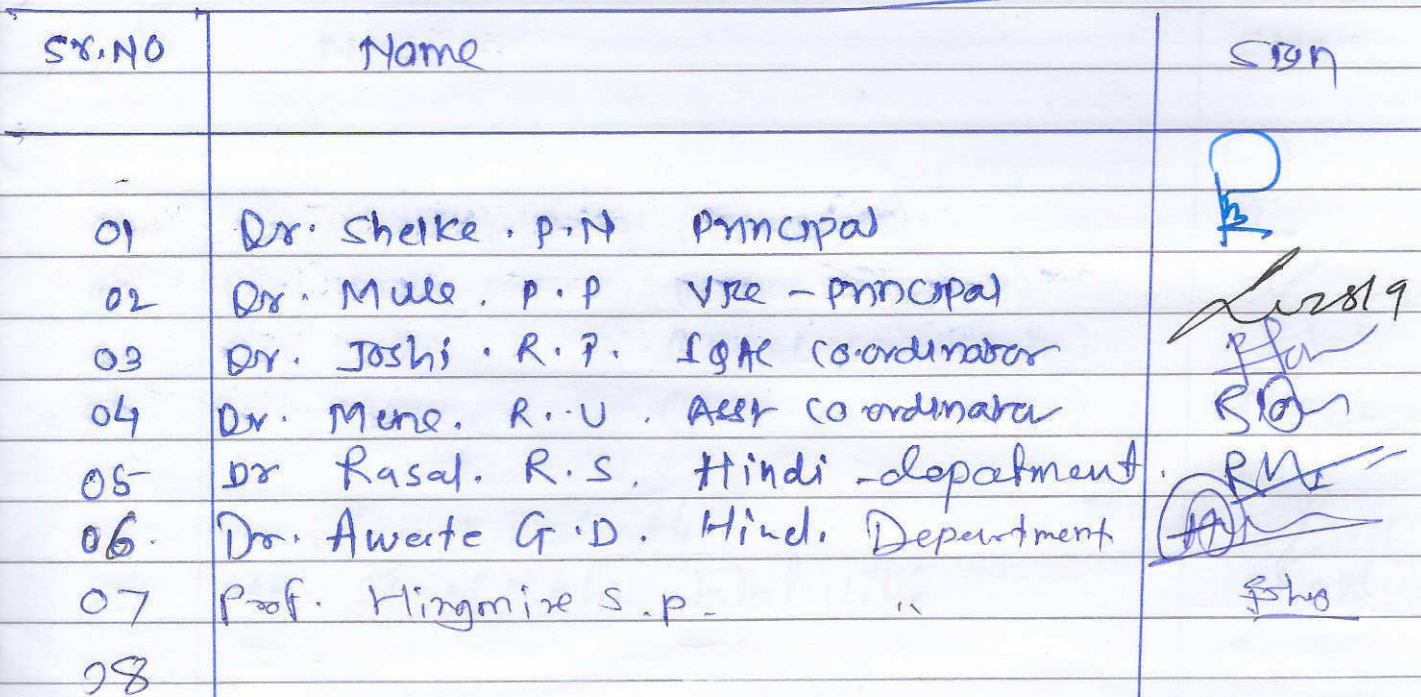 Sr.No Name Sign
01 Dr. Shelke. P.N Principal
02 Dr. Mule. P.P Vice-principal
03 Dr. Joshi. R.P. IQAC Co.ordinator
04 Dr. Mene. R.U Asst Co ordinator
05 Dr Rasal. R.S. Hindi-depatment.
06. Dr. Awate G.D. Hind. Department
07 Prof. Hingmire S.p. "
08